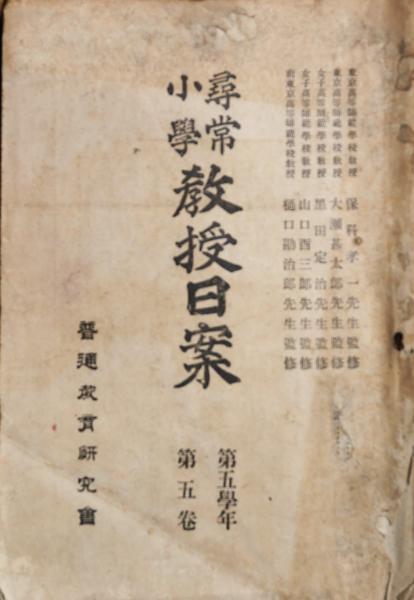 東京高等師範學校教授 保科孝一先生監修
東京高等師範學校教授 大瀬甚太郎先生監修
女子高等師範學校教授 黑田定治先生監修
女子高等師範學校教授 山口酉三郎先生監修
前東京高等師範學校教授 樋口勘治郎先生監修
尋常
小學
教授日案
第五學年
第五卷
普通教育研究會